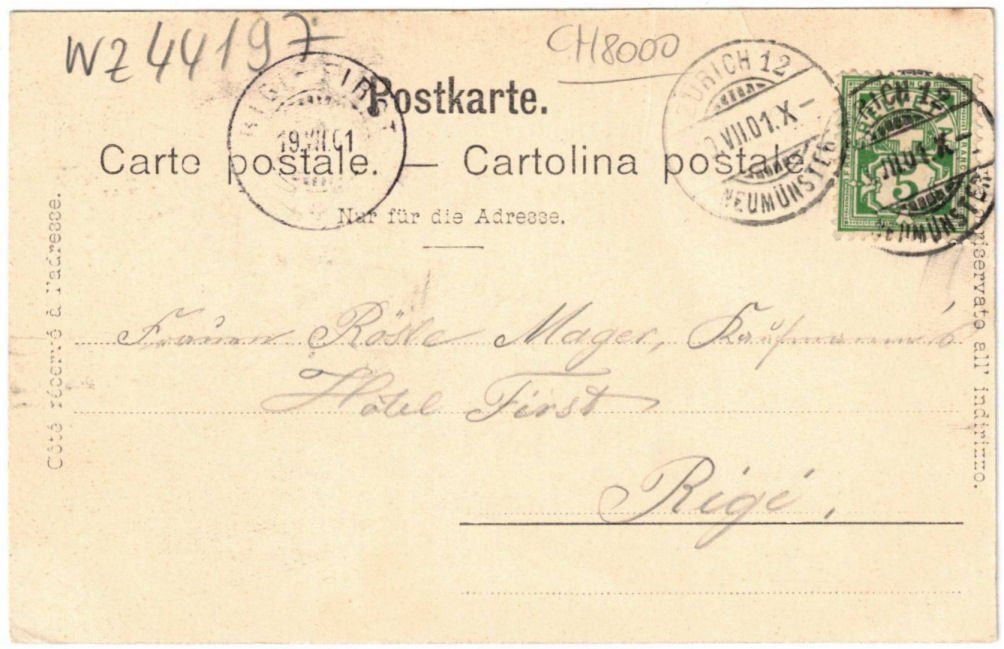 WZ 44197
CH8000
RIGI-FIRST
19.VII.01
ZÜRICH 12
VII.01.X-
NEUMÜNSTER
ZÜRICH 12
VII.01.X-
NEUMÜNSTER
5
Postkarte.
Carte postale. — Cartolina postale.
Nur für die Adresse.
Côté réservé à l'adresse.
riservato all' indirizzo.
Frauen Rösle Mager, Kaufmann's
Hôtel First
Rigi.